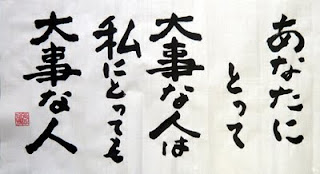 あなたに
とって
大事な人は
私にとっても
大事な人